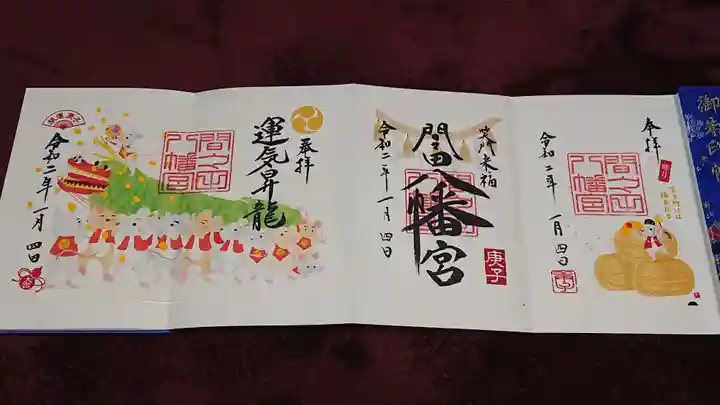 奉拝
運気昇龍
間々田
八幡宮
令和二年一月四日
笑門来福
間々田八幡宮
庚子
令和二年一月四日
奉拝
間々田
八幡宮
令和二年一月四日
御朱印帳